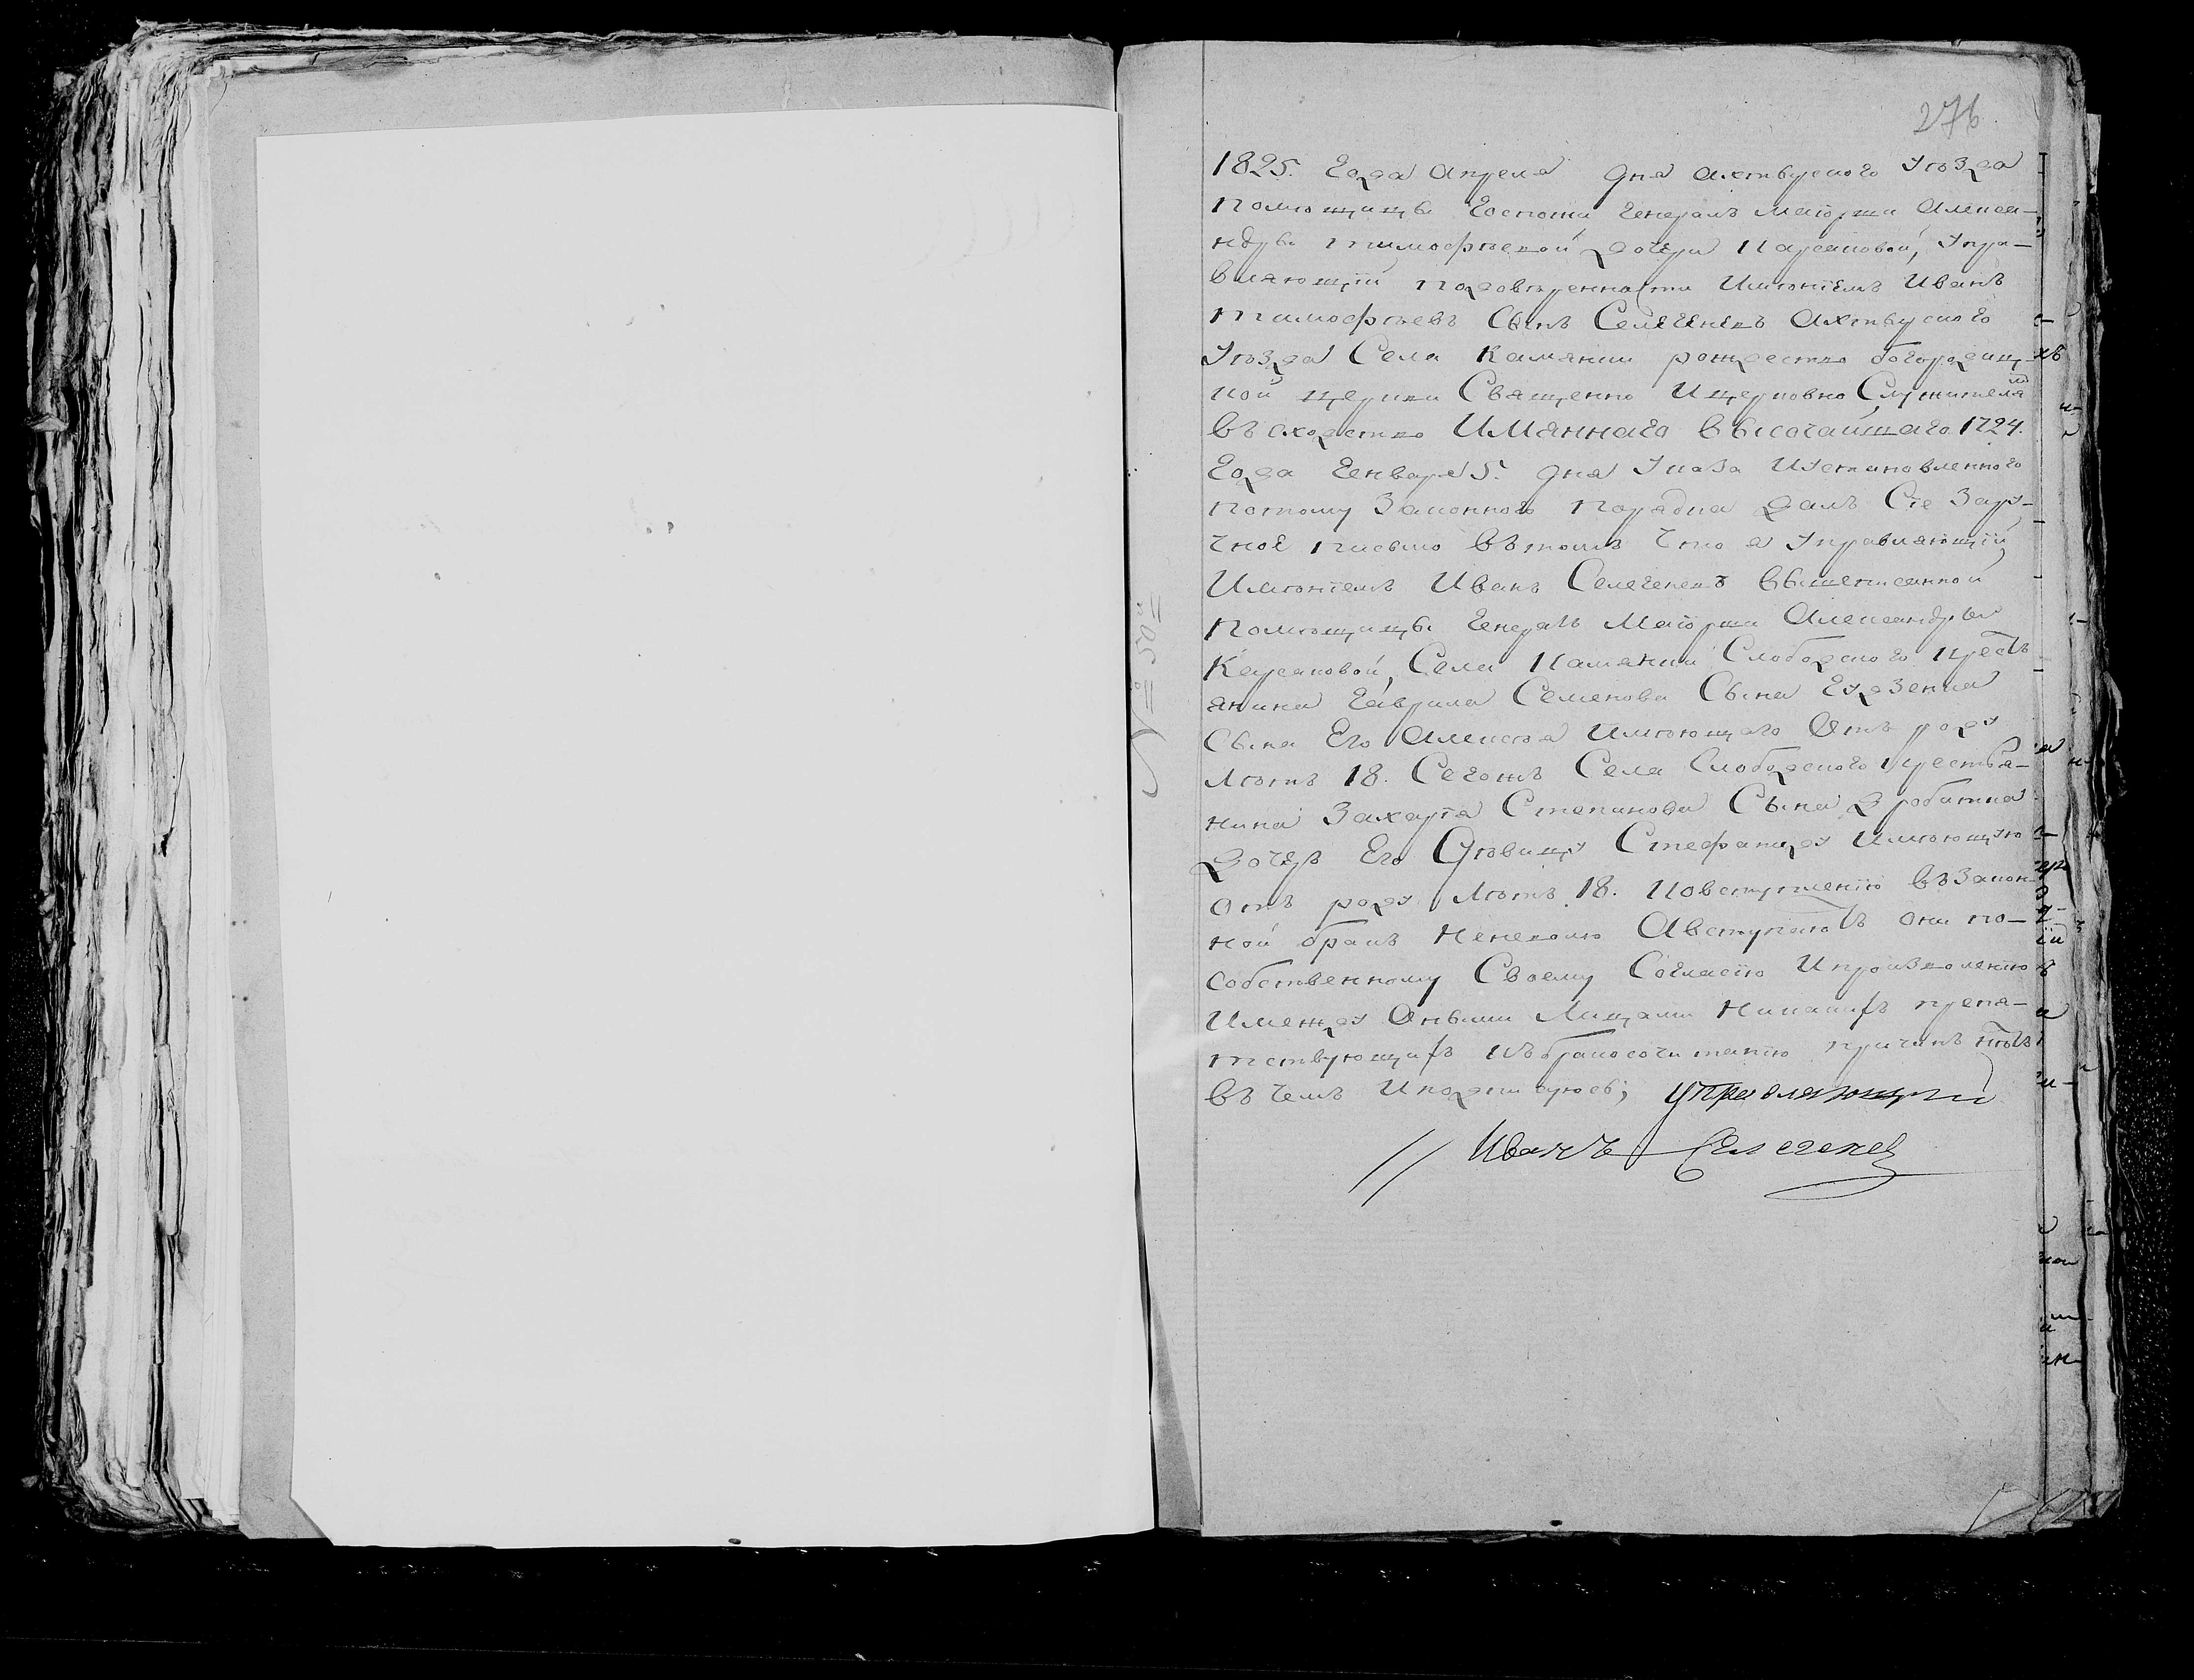 276
1825. Года Апреля дня Ахтырского Уѣзда
Помѣщицы Госпожи Генералъ Маіорши Алекса-
ндры Тимофѣевой дочери Карсаковой, Упра-
вляющій Подовѣренности Имѣніемъ Иванъ
Тимофѣевъ Сынъ Селегеневъ Ахтырского
Уѣзда Села Камянки рождество богородич-
ной церкви Священно Ицерковно Служителям
въ сходство Имяннаго Высочайшаго 1724.
Года Генваря 5. дня Указа Иустановленного
Потому Законного Порядка далъ Сіе Зару-
чное письмо Вътомъ Что я Управляющій
Имѣніемъ Иванъ Селегеневъ Вышеписанной
Помѣщицы Генералъ Маіорши Александры
Карсаковой, Села Камянки Слободского кресть
янина Гаврила Семенова Сына Гудзенка
Сына Его Алексѣя Имѣющаго Отъ роду
Лѣтъ 18. Сегожъ Села Слободского крестья-
нина Захарія Степанова Сына Дробатка
дочерь Его Дѣвицу Стефаниду Имѣющую
Отъ роду Лѣтъ 18. Ковступленію Взакон
ной бракъ Неневолю Авступаютъ они по-
собственному Своему Согласію Ипроизволенію
Имежду Оными Лицами Никакихъ препя-
тствующихъ Къбракосочетанію причинъ нѣтъ
Въ чемъ Иподписуюсь; Управляющій
Иванъ Селегенев